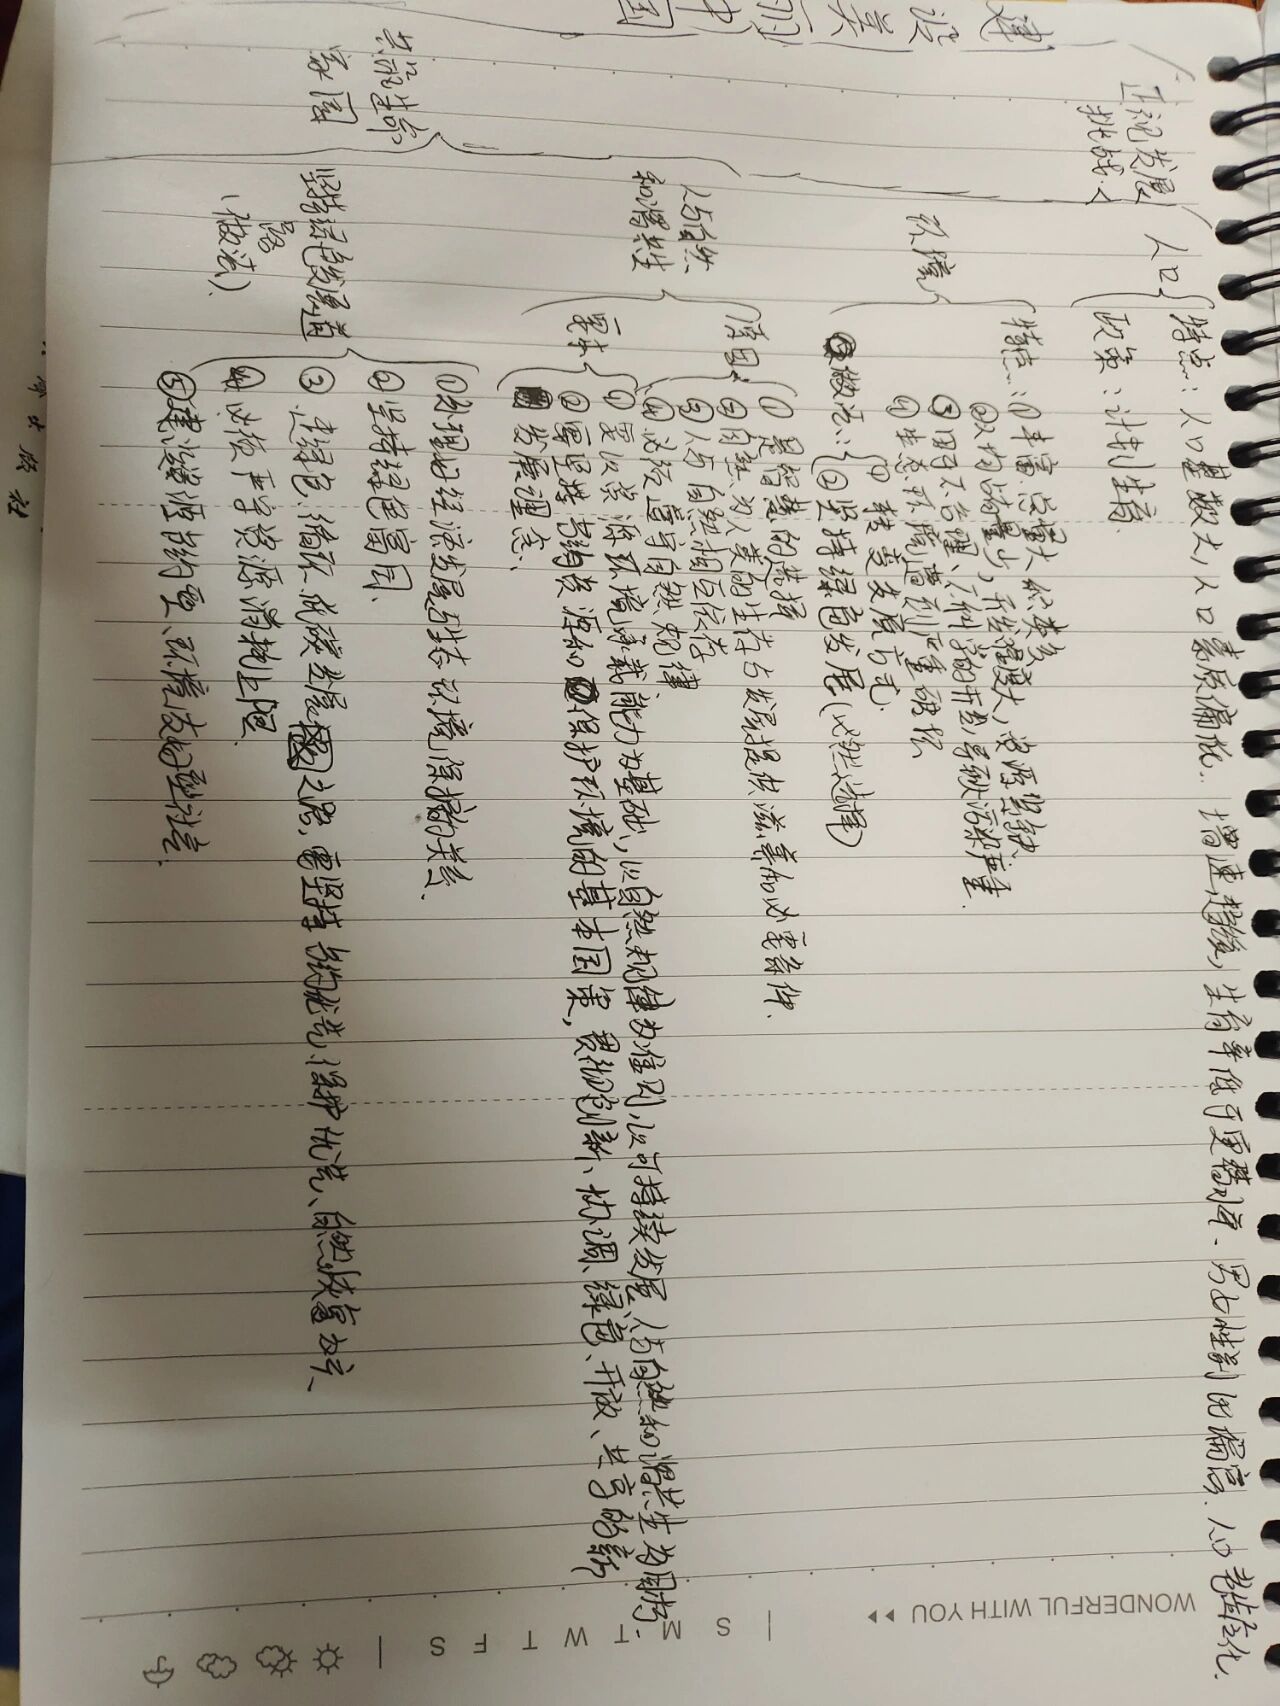 建设美丽中国
正视发展
挑战
人口
特点：人口基数大，人口素质偏低．增速趋缓，生育率低于更替水平、男女性别比偏高．人口老龄化．
政策：计划生育．
环境
特点：①丰富．总量大 种类多
②人均占有量少，开发难度大，资源紧缺
③因不合理、不科学的开发，导致污染严重．
④生态环境遭到严重破坏
做法：①转变发展方式
②坚持绿色发展（必然选择）
共筑生命
家园
人与自然
和谐共生
原因：
①是智慧的选择
②自然为人类的生存与发展提供滋养和必需条件．
③人与自然相互依存
④必须遵守自然规律
要求
①要以资源环境承载能力为基础，以自然规律为准则，以可持续发展、人与自然和谐共生为目标．
②需坚持节约资源和保护环境的基本国策，贯彻创新、协调、绿色、开放、共享的新
发展理念．
坚持绿色发展道
路
（做法）．
①处理好经济发展与生态环境保护的关系．
②坚持绿色富国．
③走绿色、循环、低碳发展之路，需坚持节约优先、保护优先、自然恢复为主、
④必须严守资源消耗上限．
⑤建设资源节约型、环境友好型社会．
WONDERFUL WITH YOU
S M T W T F S